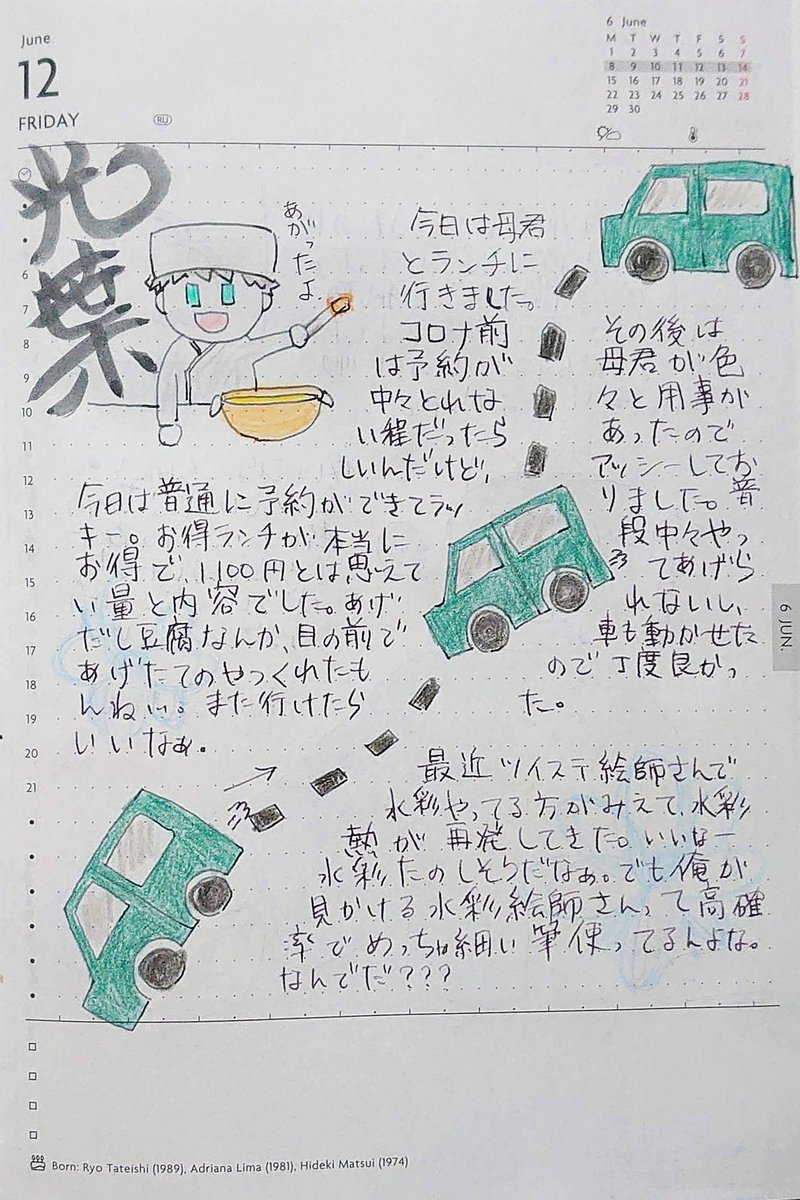 June
12
FRIDAY
RU
6 June
M T W T F S S
1 2 3 4 5 6 7
8 9 10 11 12 13 14
15 16 17 18 19 20 21
22 23 24 25 26 27 28
29 30
光葉
あがったよ
今日は母君
とランチに
行きました。
コロナ前
は予約が
中々とれな
い程だったら
しいんだけど、
今日は普通に予約ができてラッ
キー。お得ランチが本当に
お得で、1,100円とは思えて
い量と内容でした。あげ
だし豆腐なんか、目の前で
あげたてのやつくれたも
んねぃ。また行けたら
いいなぁ。
その後は
母君が色
々と用事が
あったので
アッシーしてお
りました。普
段中々やっ
てあげら
れないし、
車も動かせた
ので丁度良かっ
た。
最近ツイステ絵師さんで
水彩やってる方がみえて、水彩
熱が再発してきた。いいなー
水彩たのしそうだなぁ。でも俺が
見かける水彩絵師さんって高確
率でめっちゃ細い筆使ってるんよな。
なんでだ???
6
7
8
9
10
11
12
13
14
15
16
17
18
19
20
21
6 JUN
Born: Ryo Tateishi (1989), Adriana Lima (1981), Hideki Matsui (1974)